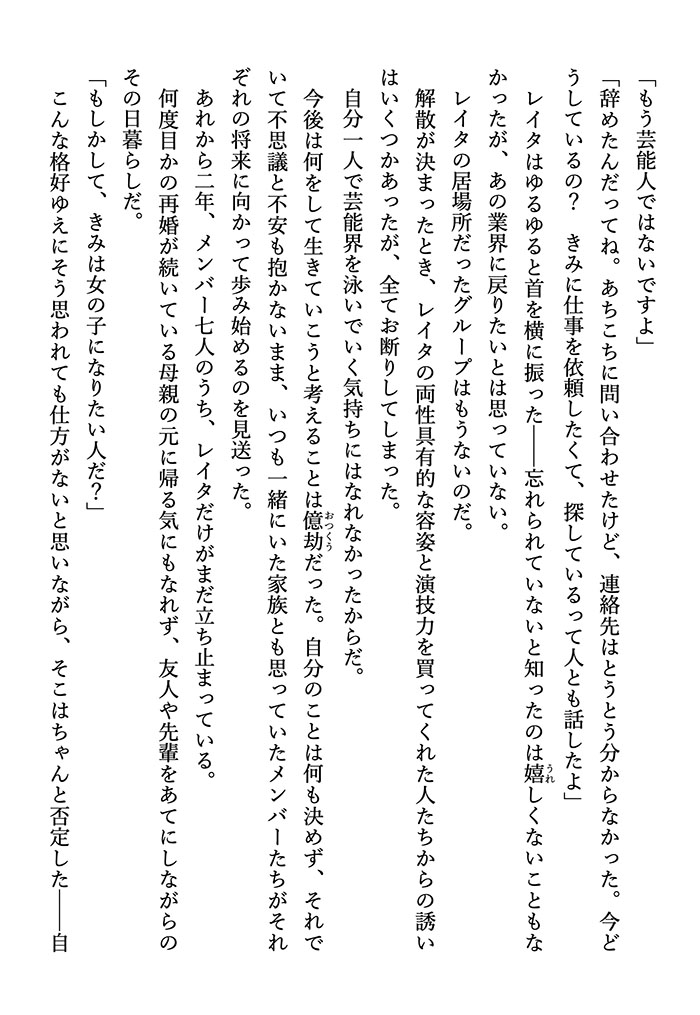 「もう芸能人ではないですよ」
「辞めたんだってね。あちこちに問い合わせたけど、連絡先はとうとう分からなかった。今ど
うしているの？　きみに仕事を依頼したくて、探しているって人とも話したよ」
　レイタはゆるゆると首を横に振った――忘れられていないと知ったのは嬉しくないこともな
かったが、あの業界に戻りたいとは思っていない。
　レイタの居場所だったグループはもうないのだ。
　解散が決まったとき、レイタの両性具有的な容姿と演技力を買ってくれた人たちからの誘い
はいくつかあったが、全てお断りしてしまった。
　自分一人で芸能界を泳いでいく気持ちにはなれなかったからだ。
　今後は何をして生きていこうと考えることは億劫だった。自分のことは何も決めず、それで
いて不思議と不安も抱かないまま、いつも一緒にいた家族とも思っていたメンバーたちがそれ
ぞれの将来に向かって歩み始めるのを見送った。
　あれから二年、メンバー七人のうち、レイタだけがまだ立ち止まっている。
　何度目かの再婚が続いている母親の元に帰る気にもなれず、友人や先輩をあてにしながらの
その日暮らしだ。
「もしかして、きみは女の子になりたい人だ？」
　こんな格好ゆえにそう思われても仕方がないと思いながら、そこはちゃんと否定した――自